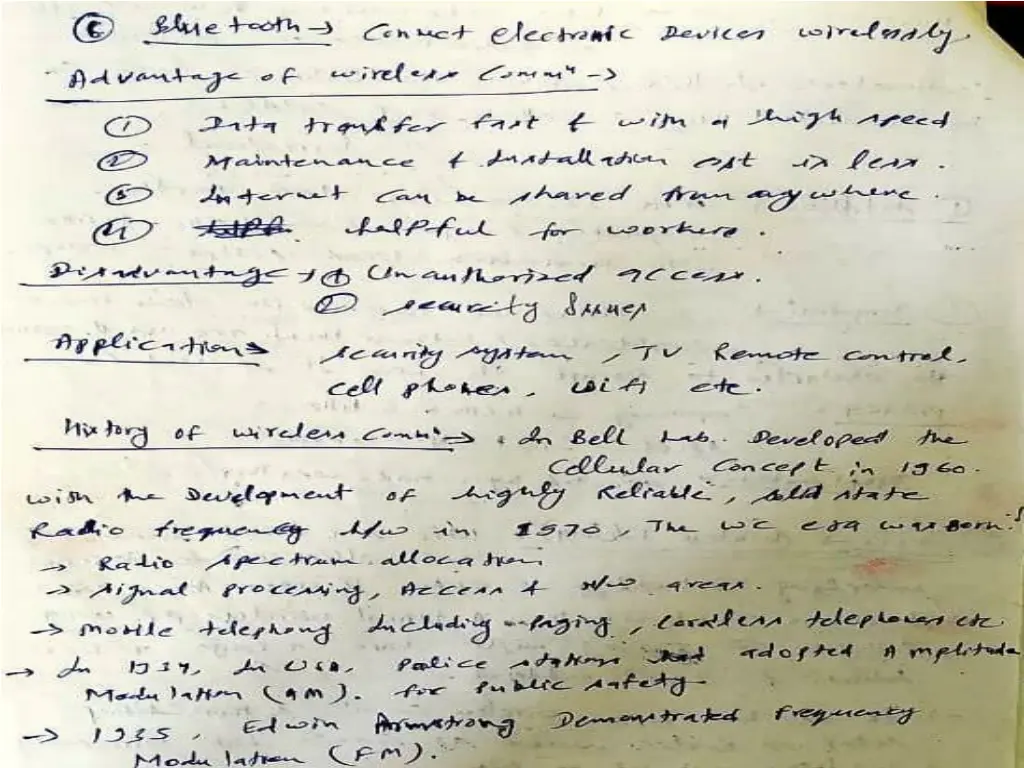 ⑥ Bluetooth → Connect electronic Devices wirelessly.
Advantage of wireless Commⁿ →
① Data transfer fast & with a high speed
② Maintenance & Installation cost is less.
③ Internet can be shared from anywhere.
④ helpful for workers.
Disadvantage → ① Unauthorized access.
② security Issues
Application → security system, TV Remote control,
cell phones, wifi etc.
History of wireless Commⁿ → In Bell Lab. Developed the
Cellular Concept in 1960.
with the Development of highly Reliable, solid state
Radio frequency H/w in 1970, The WC era was Born.
→ Radio spectrum allocation
→ signal processing, Access & N/w areas.
→ Mobile telephony Including paging, cordless telephones etc.
→ In 1934, In USA, Police stations had adopted Amplitude
Modulation (AM). for public safety
→ 1935, Edwin Armstrong Demonstrated frequency
Modulation (FM).